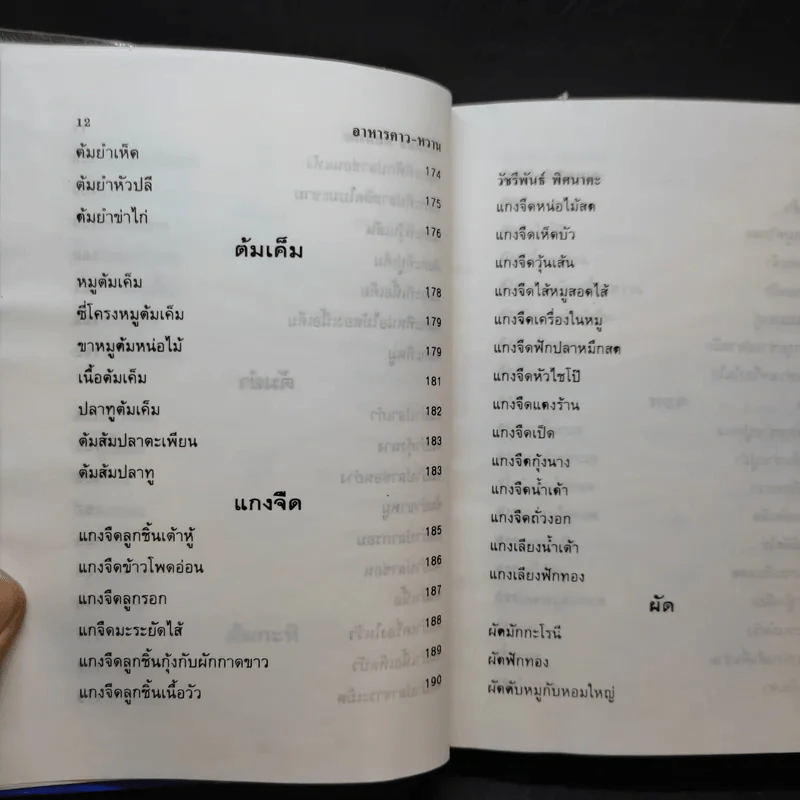 12 อาหารคาว-หวาน
ต้มยำเห็ด 174
ต้มยำหัวปลี 175
ต้มยำข่าไก่ 176
ต้มเค็ม
หมูต้มเค็ม 178
ซี่โครงหมูต้มเค็ม 179
ขาหมูต้มหน่อไม้ 179
เนื้อต้มเค็ม 181
ปลาทูต้มเค็ม 182
ต้มส้มปลาตะเพียน 183
ต้มส้มปลาทู 183
แกงจืด
แกงจืดลูกชิ้นเต้าหู้ 185
แกงจืดข้าวโพดอ่อน 186
แกงจืดลูกรอก 187
แกจืดมะระยัดไส้ 188
แกงจืดลูกชิ้นกุ้งกับผักกาดขาว 189
แกงจืดลูกชิ้นเนื้อวัว 190
วัชรีพันธ์ พิศนาคะ
แกงจืดหน่อไม้สด
แกงจืดเห็ดบัว
แกงจืดวุ้นเส้น
แกงจืดไส้หมูสอดไส้
แกงจืดเครื่องในหมู
แกงจืดฟักปลาหมึกสด
แกงจืดหัวไชโป๊
แกงจืดแตงร้าน
แกงจืดเป็ด
แกงจืดกุ้งนาง
แกงจืดน้ำเต้า
แกงจืดถั่วงอก
แกงเลียงน้ำเต้า
แกงเลียงฟักทอง
ผัด
ผัดมักกะโรนี
ผัดฟักทอง
ผัดตับหมูกับหอมใหญ่